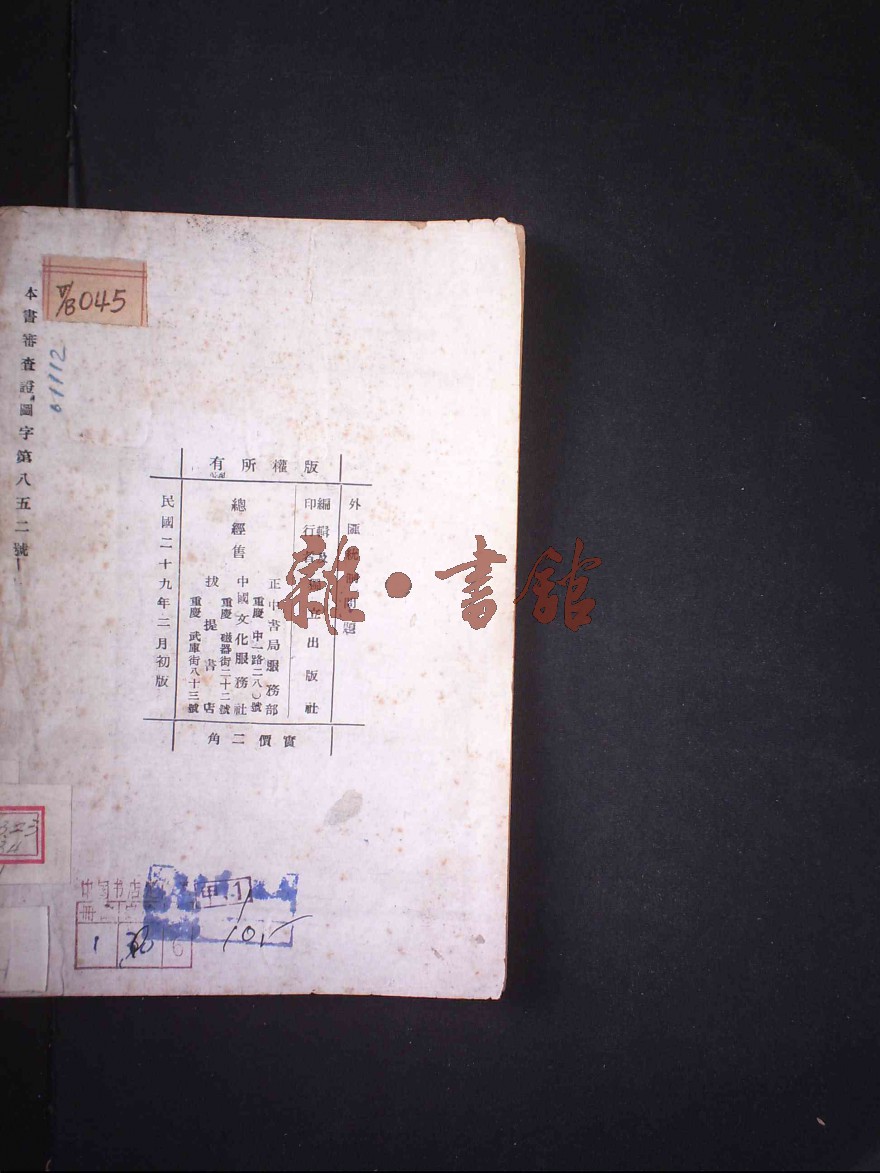 版權所有
外匯統制問題
編輯及
印行者 獨立出版社
總經售
正中書局服務部
重慶中一路二八〇號
中國文化服務社
重慶磁器街二十二號
拔提書店
重慶武庫街八十三號
民國二十九年二月初版
實價二角
本書審查證圖字第八五二號
045
61112
中国书店
册
1
6
甲1
101
雜·書館